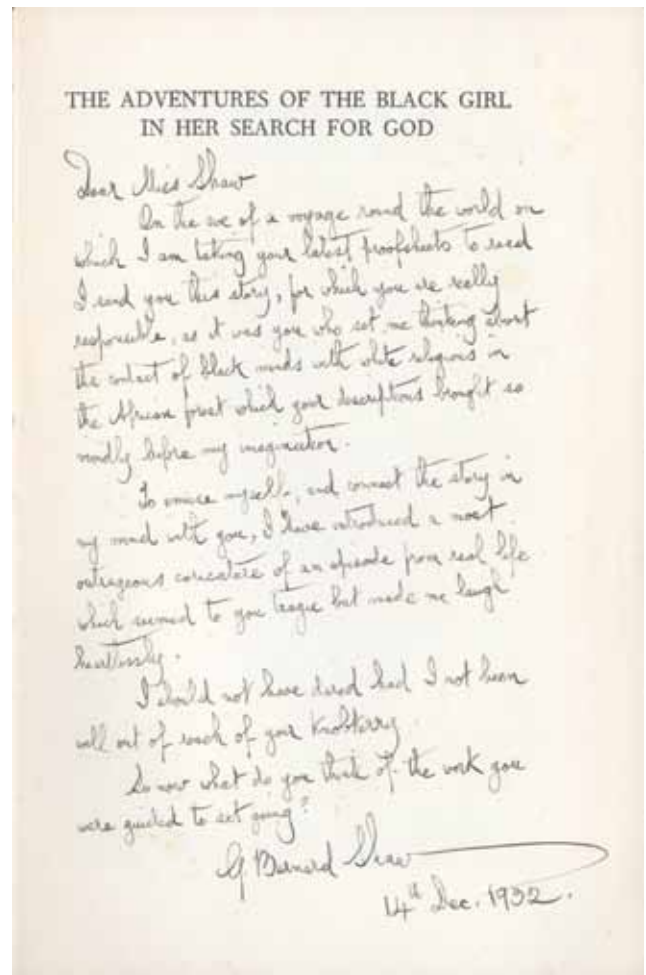 THE ADVENTURES OF THE BLACK GIRL
IN HER SEARCH FOR GOD
Dear Miss Shaw
On the eve of a voyage round the world on
which I am taking your latest proofsheets to read
I send you this story, for which you are really
responsible, as it was you who set me thinking about
the contact of black minds with white religions in
the African forest which your descriptions brought so
vividly before my imagination.
To amuse myself, and connect the story in
my mind with you, I have introduced a most
outrageous caricature of an episode from real life
which seemed to you tragic but made me laugh
heartlessly.
I should not have dared had I not been
well out of reach of your knobkerry.
So now what do you think of the work you
were guided to set going?
G Bernard Shaw
14th Dec. 1932.